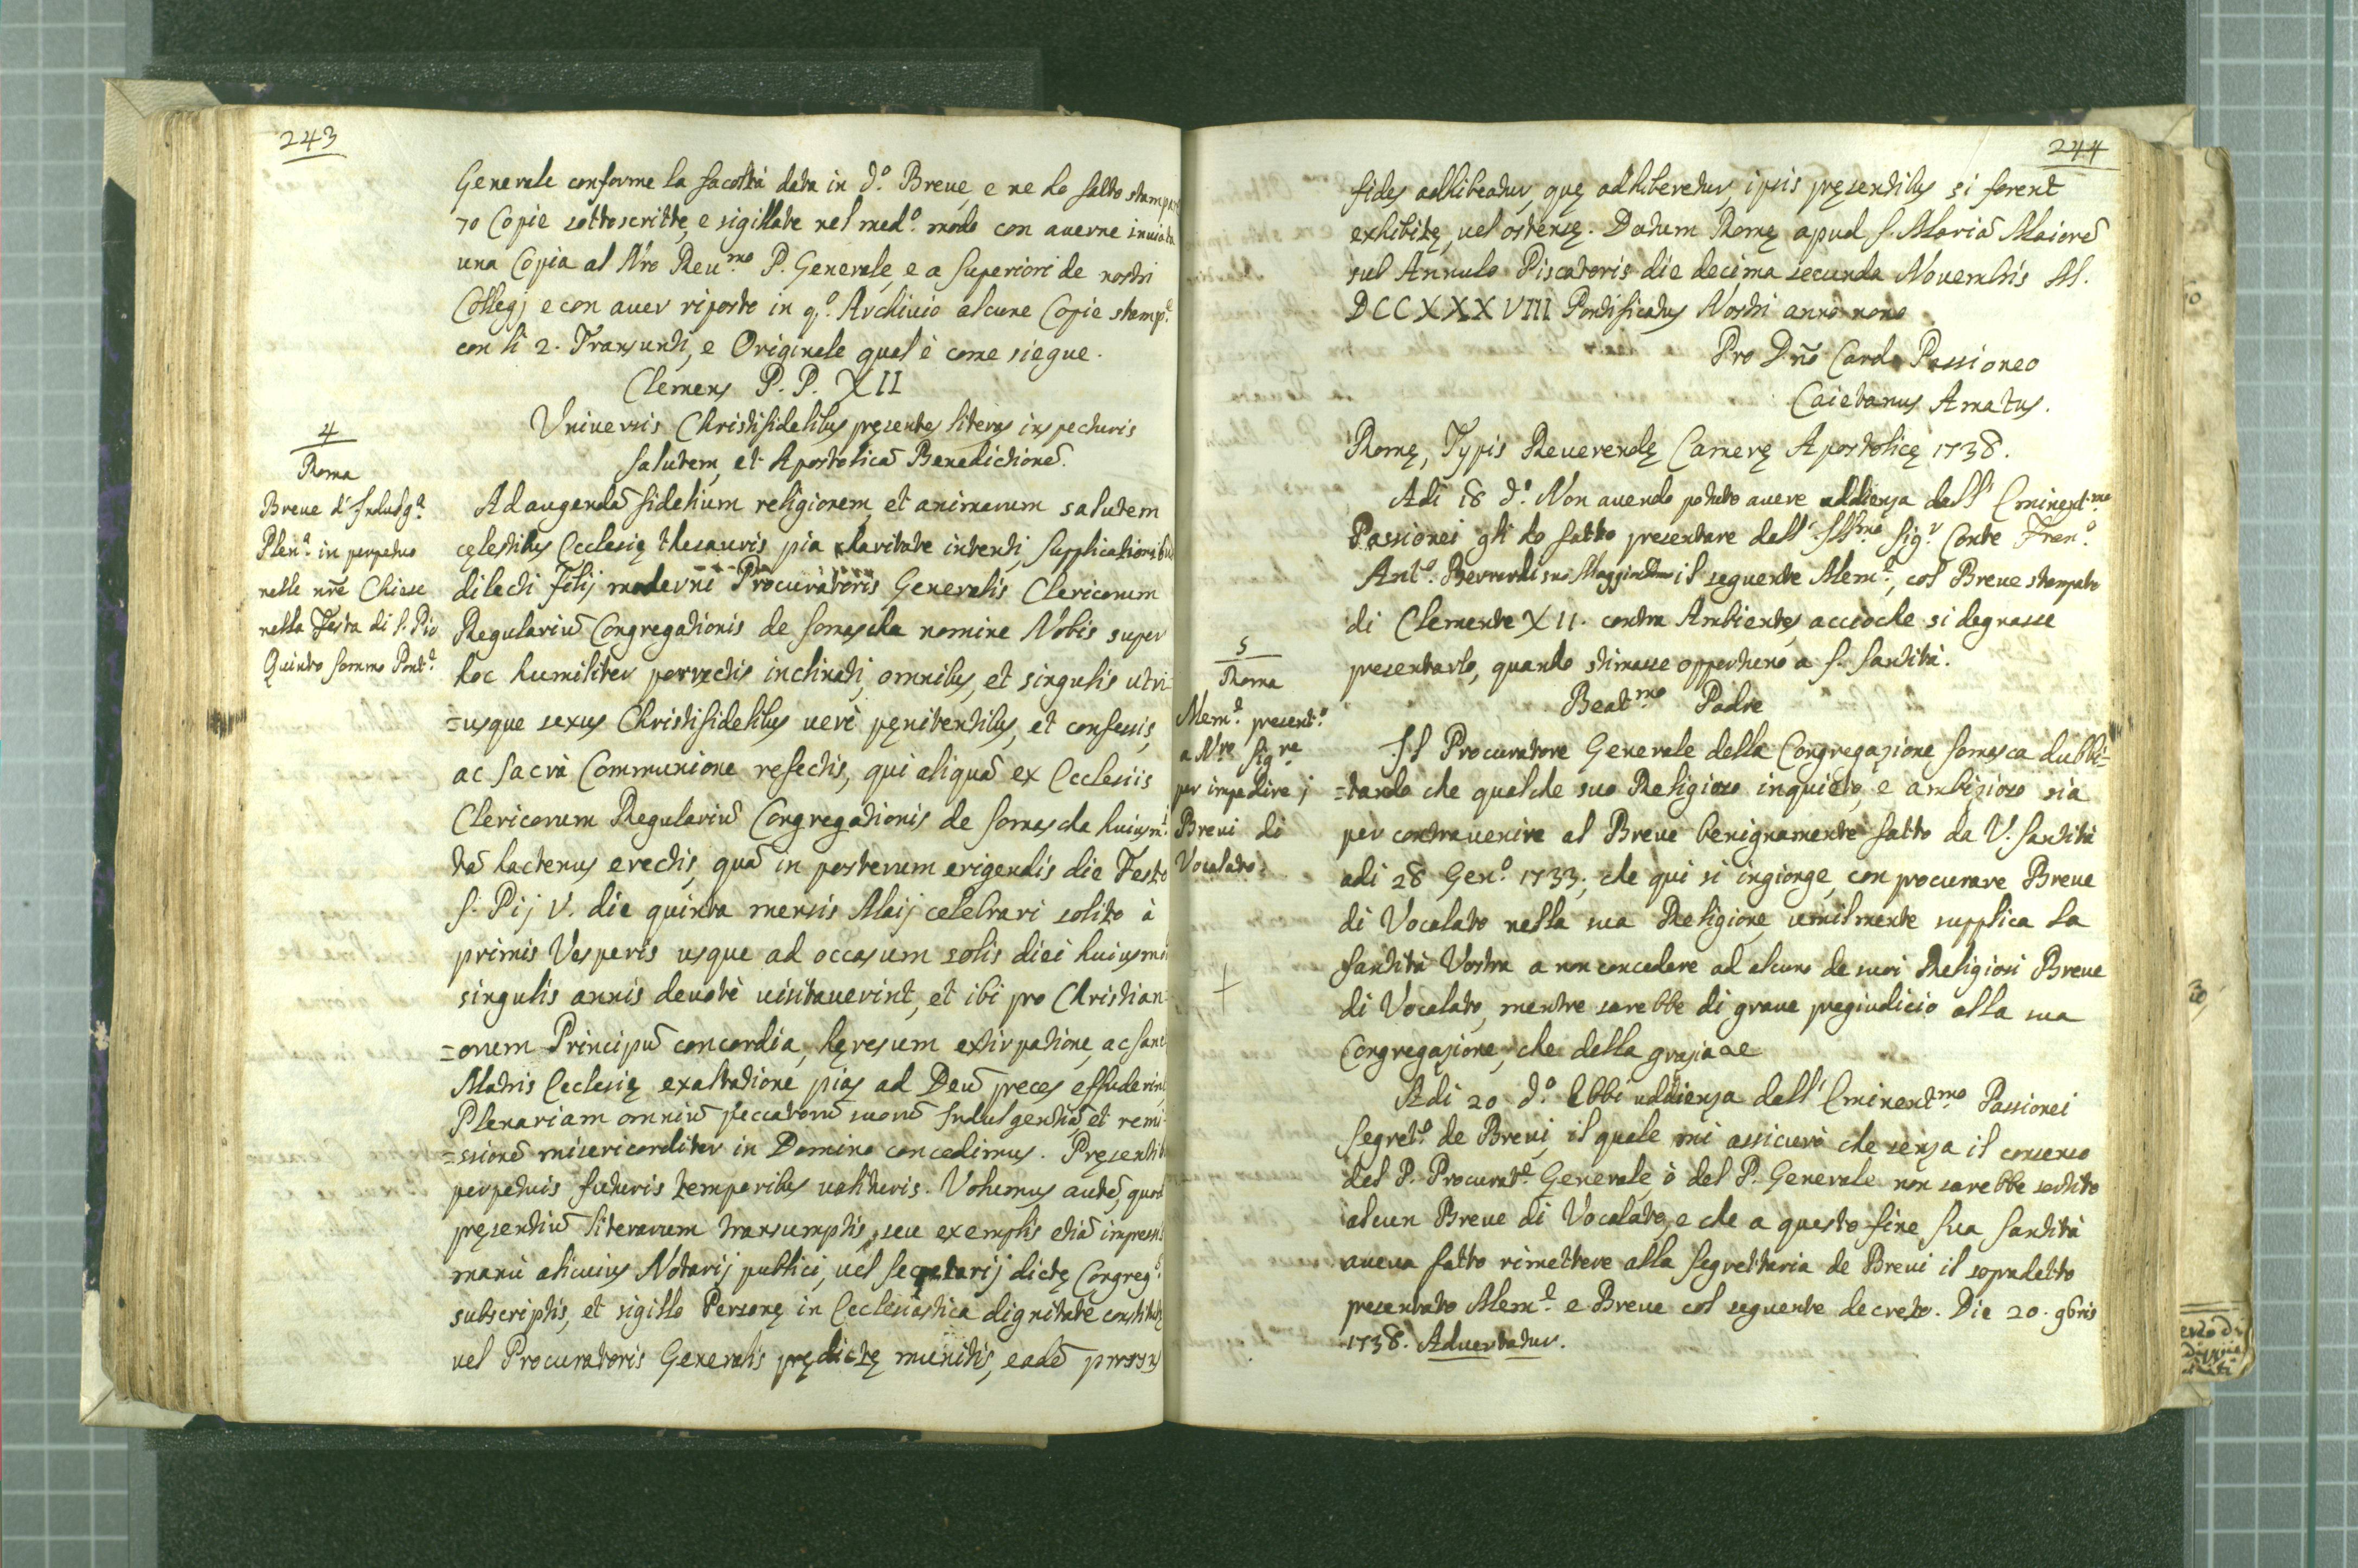 243
Generale conforme la facoltà data in d.º Breue, e ne ho fatto stampare
70 Copie sottoscritte, e sigillate nel med.º modo con auerne inuiata
una Copia al Nro Reu.mo P. Generale, e a Superiori de nostri
Collegj e con auer riposto in q.º Archiuio alcune Copie stamp.e
con li 2. Transunti, e Originale qual è come siegue.
Clemens P. P. XII
Vniuersis Christifidelibus pręsentes literas inspecturis
salutem, et Apostolicā Benedictionē.
4
Roma
Breue d'Indulg.a
Plen.a in perpetuo
nelle nr̄e Chiese
nella Festa di S. Pio
Quinto sommo Pont.e
Ad augendā fidelium religionem, et animarum salutem
cęlestibus Ecclesię thesauris pia charitate intenti, supplicationibus
dilecti Filij moderni Procuratoris Generalis Clericorum
Regulariū Congregationis de Somascha nomine Nobis super
hoc humiliter porrectis inclinati, omnibus, et singulis utri=
=usque sexus Christifidelibus uerè pęnitentibus, et confessis,
ac Sacrà Communione refectis, qui aliquā ex Ecclesiis
Clericorum Regulariū Congregationis de Somascha huiusm.i
tā hactenus erectis, quā in posterum erigendis die Festo
S. Pij V. die quinta mensis Maij celebrari solito à
primis Vesperis usque ad occasum solis diei huiusmōi
singulis annis deuotè uisitauerint, et ibi pro Christian=
=orum Principū concordia, hęresum extirpatione, ac Sanc
Matris Ecclesię exaltatione pias ad Deū preces effuderint
Plenariam omniū peccatorū suorū Indulgentiā, et remi=
=ssionē misericorditer in Domino concedimus. Pręsentib
perpetuis futuris temporibus ualituris. Volumus autē, quod
pręsentiū literarum transumptis, seu exemplis etiā impressis
manù alicuius Notarij publici, uel Secretarij dictę Congreg.s
subscriptis, et sigillo Personę in Ecclesiastica dignitate constitutę
uel Procuratoris Generalis prędictę munitis, eadē prorsus
244
fides adhibeatur, quę adhiberetur, ipsis pręsentibus si forent
exhibitę, uel ostensę. Datum Romę apud S. Mariā Maiorē
sub Annulo Piscatoris die decima secunda Nouembris M.
DCCXXXVIII Pontificatus Nostri anno nono
Pro Dn̄o Card. Passioneo
Caietanus Amatus.
Romę, Typis Reuerendę Camerę Apostolicę 1738.
Adi 18 d.º Non auendo potuto auere uddienza dall' Eminent.mo
Passionei gli ho fatto presentare dall' Ill.mo Sig.r Conte Fran.º
Ant.º Berrardi suo il seguente Mem.e, col Breue stampato
di Clemente XII. contra Ambientes, acciochè si degnasse
presentarlo, quando stimasse opportuno a S. Santità.
5
Roma
Mem.e present.º
a N.ro Sig.re
per impedire i
Breui di
Vocalato.
Beat.mo Padre
Il Procuratore Generale della Congregazione Somasca dubbi=
=tando che qualche suo Religioso inquieto, e ambizioso sia
per contrauenire al Breue benignamente fatto da V. Santità
adi 28 Gen.º 1733; che qui si ingionge, con procurare Breue
di Vocalato nella sua Religione umilmente supplica la
Santità Vostra a non concedere ad alcuno de suoi Religiosi Breue
di Vocalato, mentre sarebbe di graue pregiudicio alla sua
Congregazione, che della grazia ae
+
Adi 20 d.º Ebbi uddienza dall' Eminent.mo Passionei
Segret.º de Breui, il quale mi assicurò che senza il consenso
del P. Procurat.e Generale, ò del P. Generale non sarebbe sortito
alcun Breue di Vocalato, e che a questo fine Sua Santità
aueua fatto rimettere alla Segrettaria de Breui il sopradetto
presentato Mem.e e Breue col seguente decreto. Die 20. 9bris
1738. Aduertatur.